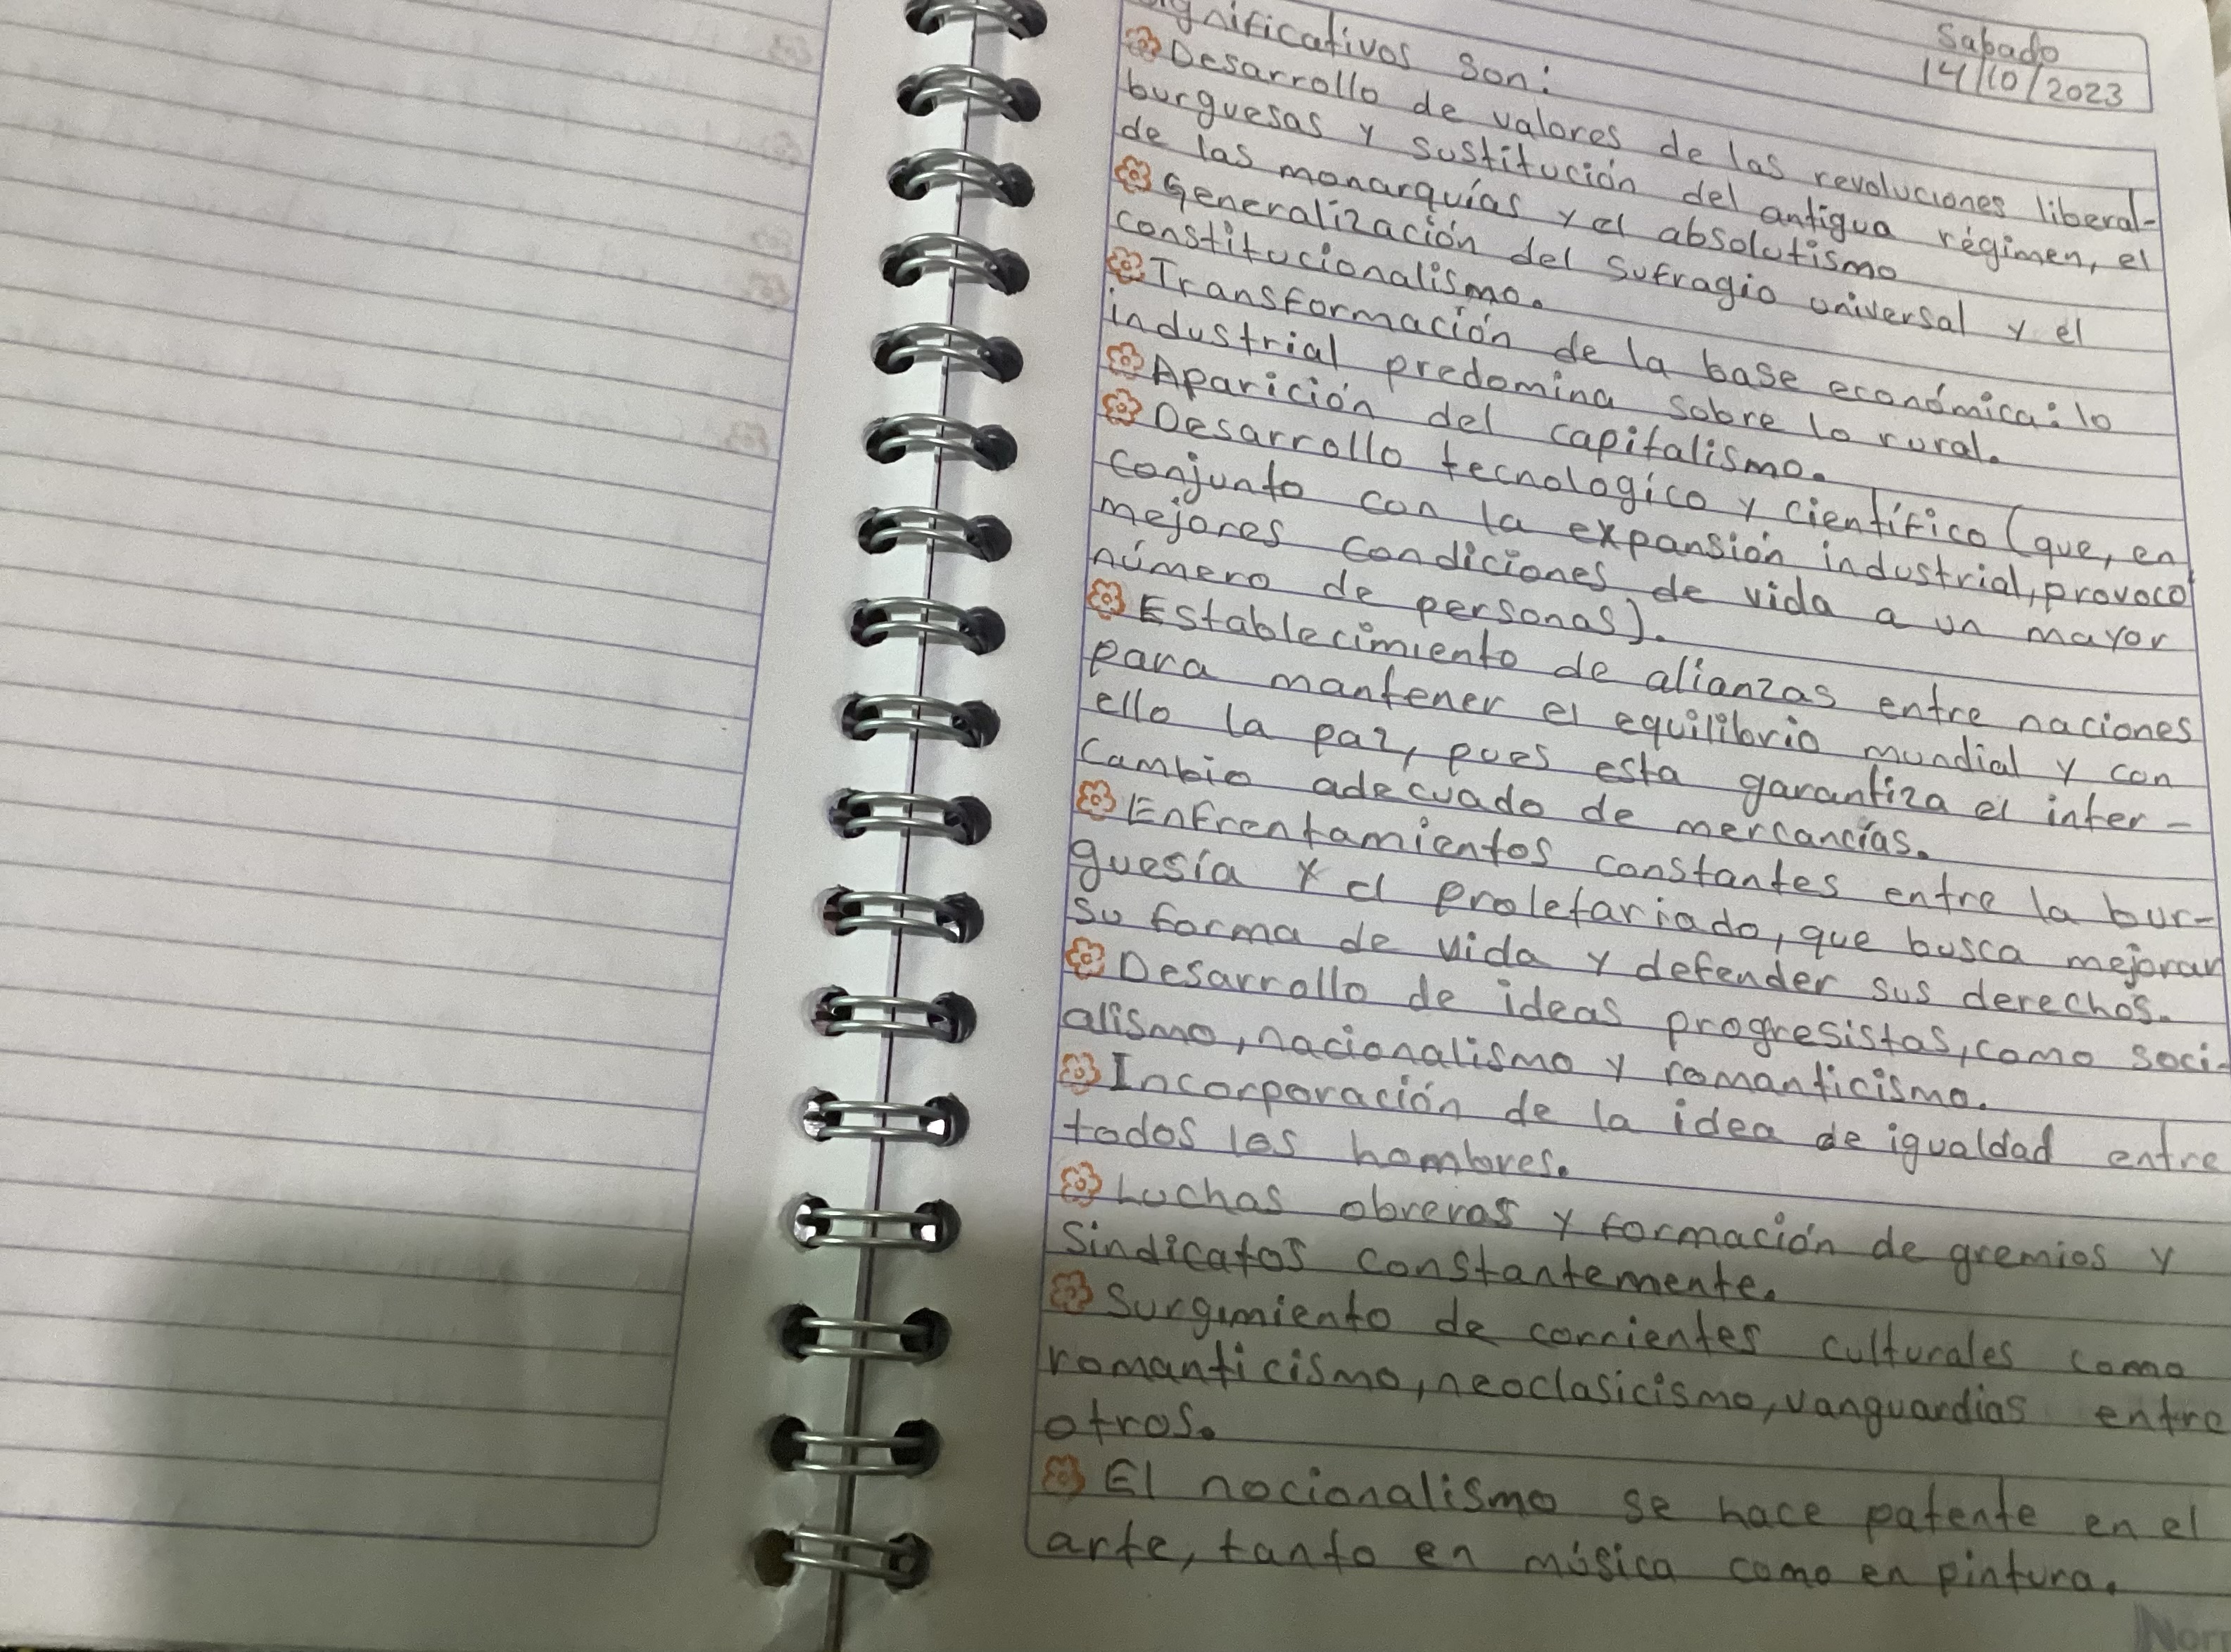 Sabado
14/10/2023
gnificativos son:
Desarrollo de valores de las revoluciones liberal-
burguesas y sustitución del antigua régimen, el
de las monarquías y el absolutismo
Generalización del sufragio universal y el
constitucionalismo.
Transformación de la base económica: lo
industrial predomina sobre lo rural.
Aparición del capitalismo.
Desarrollo tecnologíco y científico (que, en
conjunto con la expansión industrial, provocó
mejores condiciones de vida a un mayor
número de personas).
Establecimiento de alianzas entre naciones
para mantener el equilibrio mundial y con
ello la paz, pues esta garantiza el inter-
cambio adecuado de mercancías.
Enfrentamientos constantes entre la bur-
guesía y el proletariado, que busca mejorar
su forma de vida y defender sus derechos.
Desarrollo de ideas progresistas, como soci-
alismo, nacionalismo y romanticismo.
Incorporación de la idea de igualdad entre
todos los hombres.
Luchas obreras y formación de gremios y
sindicatos constantemente.
Surgimiento de corrientes culturales como
romanticismo, neoclasicismo, vanguardias entre
otros.
El nocionalismo se hace patente en el
arte, tanto en música como en pintura.
Nor